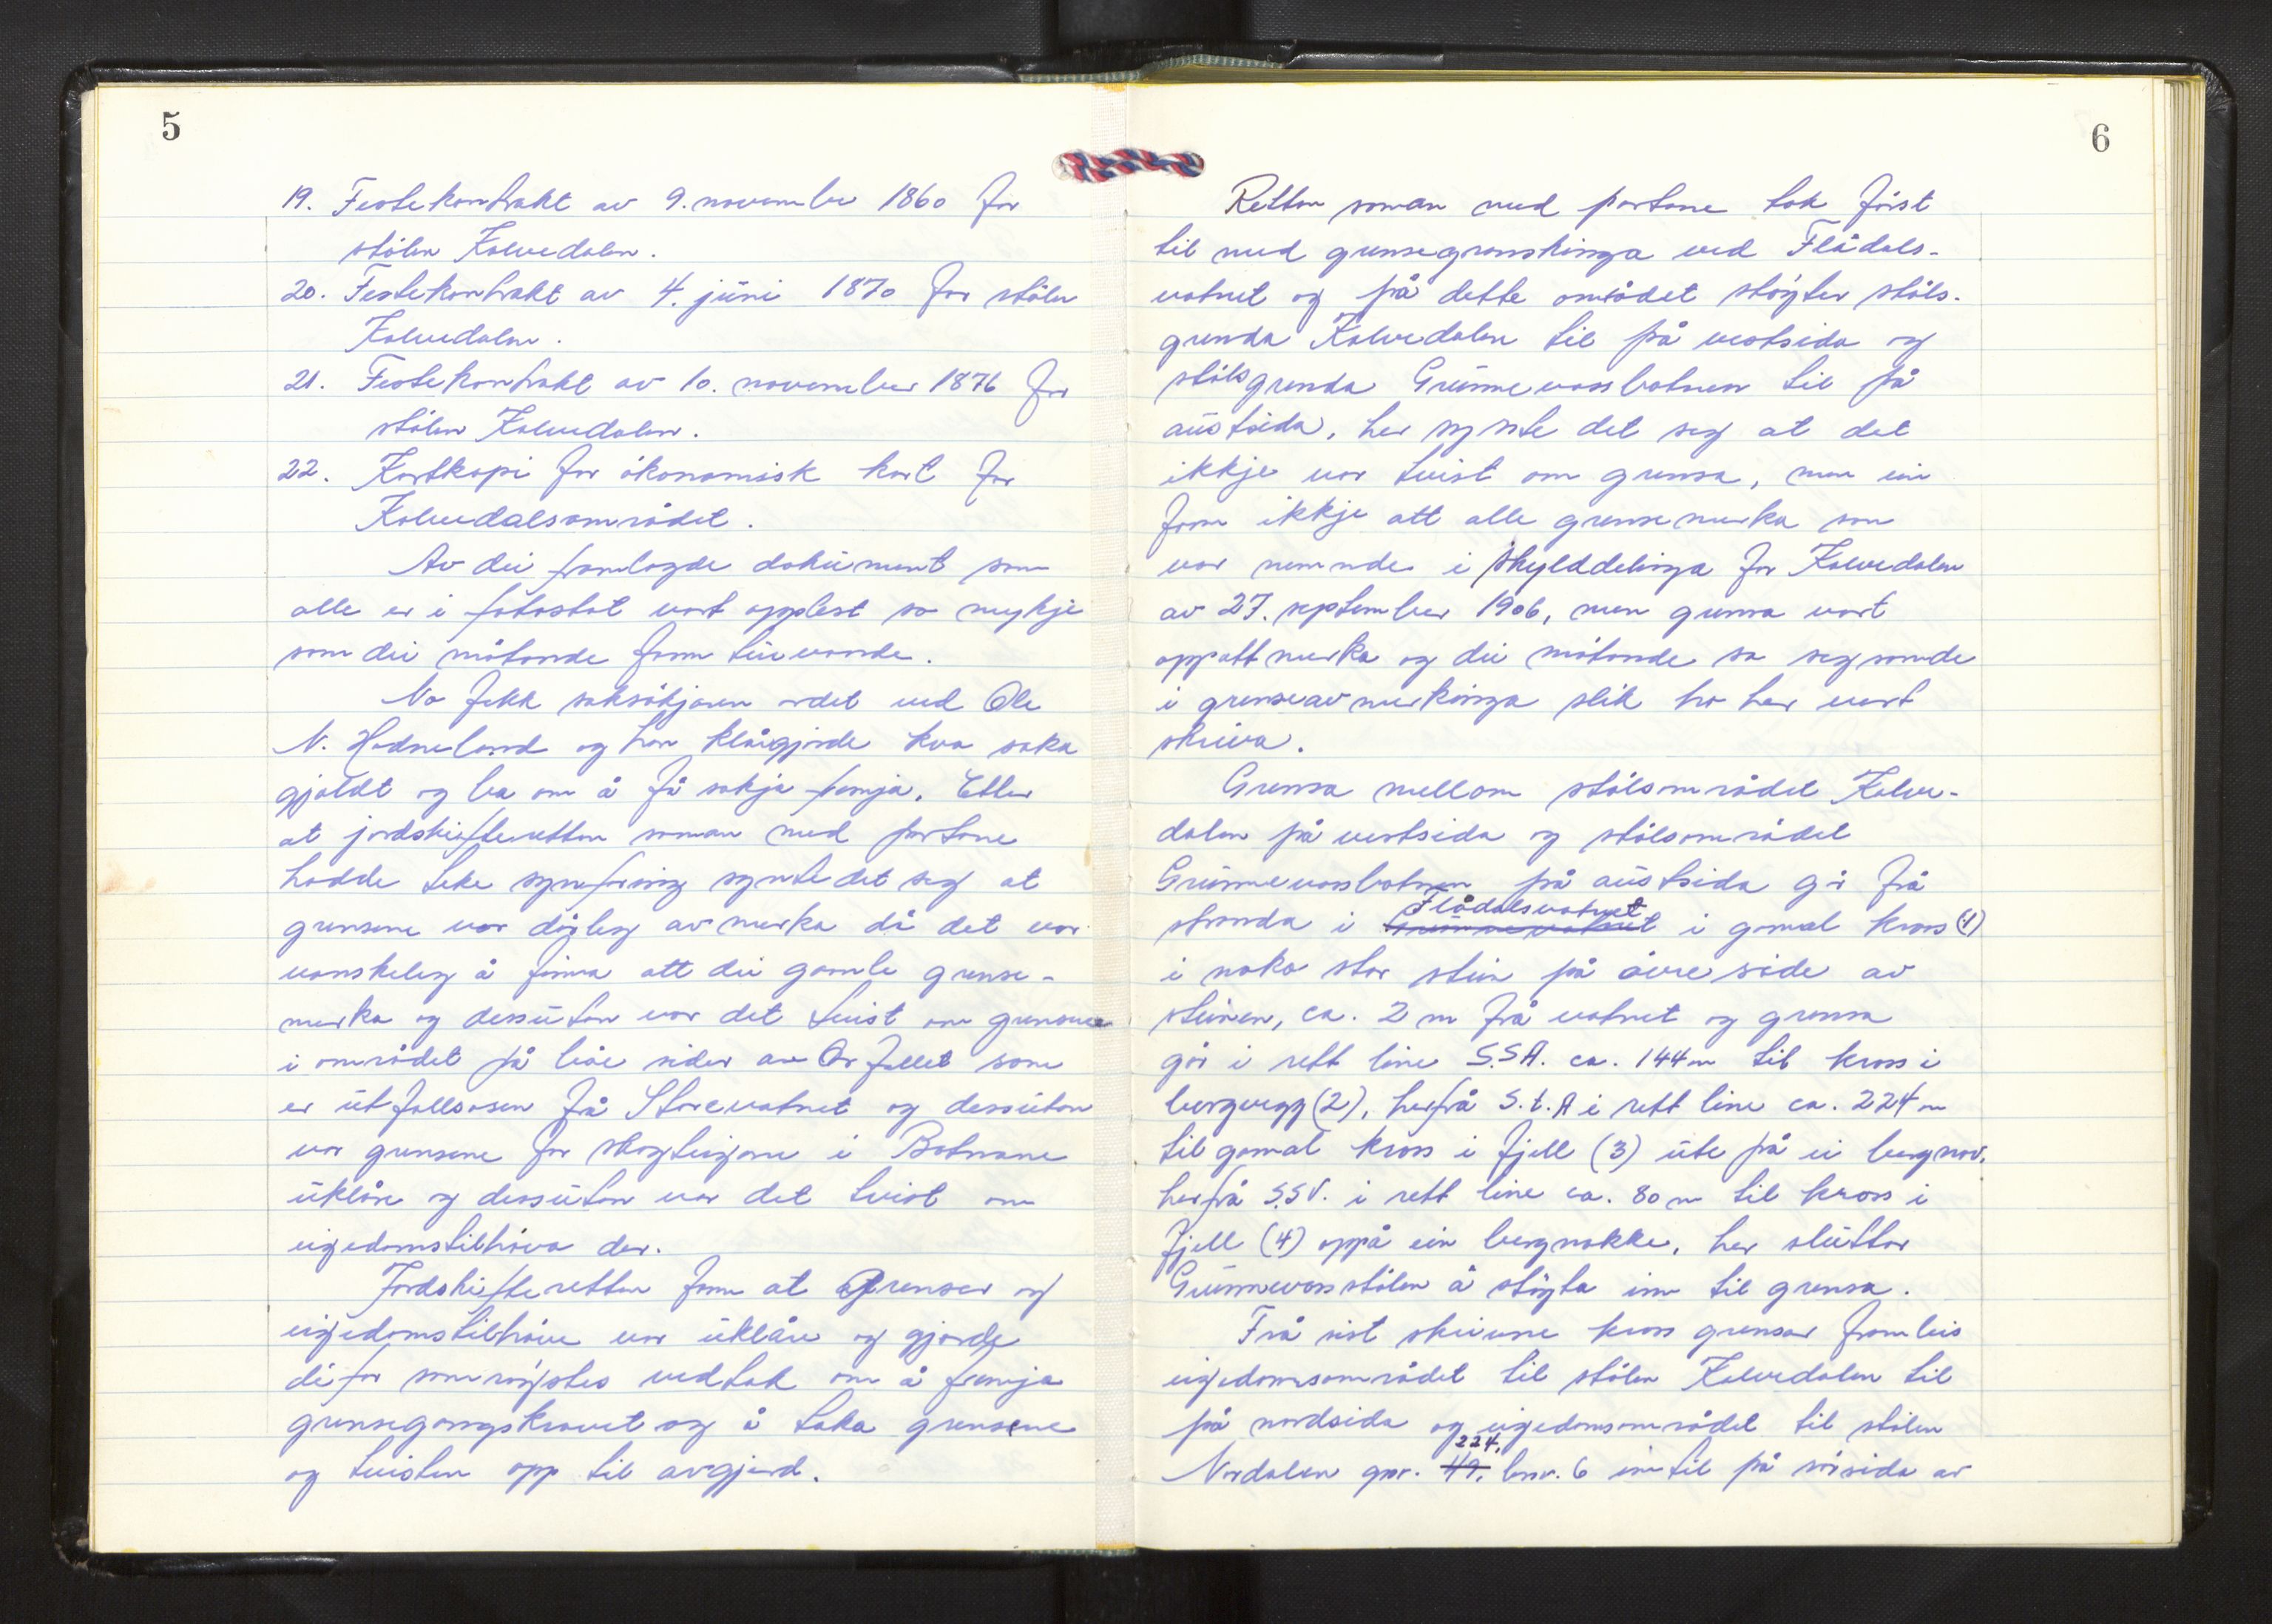 5
19. Festekontrakt av 9. november 1860 for
stølen Kalvedalen.
20. Festekontrakt av 4. juni 1870 for stølen
Kalvedalen.
21. Festekontrakt av 10. november 1876 for
stølen Kalvedalen.
22. Kartkopi for økonomisk kart for
Kalvedalsområdet.
Av dei framlagde dokument som
alle er i fotostat vart opplest so mykje
som dei møtande fann turvande.
No fekk saksøkjaren ordet ved Ole
N. Hodneland og han klårgjorde kva saka
gjaldt og ba om å få sakja fremja. Etter
at jordskifteretten saman med partane
hadde teke synfaring synte det seg at
grensene var dårleg avmerka då det var
vanskeleg å finna att dei gamle grense-
merka og dessutan var det tvist om grensene
i området på båe sider av Orfallet som
er utfallsosen frå Storevatnet og dessutan
var grensene for skogteigane i Botnane
uklåre og dessutan var det tvist om
eigedomstilhøva der.
Jordskifteretten fann at grenser og
eigedomstilhøve var uklåre og gjorde
difor samrøystes vedtak om å fremja
grensegangskravet og å taka grensene
og tvisten opp til avgjerd.
6
Retten saman med partane tok først
til med grensegranskinga ved Flådals-
vatnet og på dette området støyter støls-
grenda Kalvedalen til på vestsida og
stølsgrenda Grunnevassbotnen til på
austsida, her synte det seg at det
ikkje var tvist om grensa, men ein
fann ikkje att alle grensemerka som
var nemnde i skylddelinga for Kalvedalen
av 27. september 1906, men grensa vart
oppattmerka og dei møtande sa seg samde
i grenseavmerkinga slik ho her vart
skriva.
Grensa mellom stølsområdet Kalve-
dalen på vestsida og stølsområdet
Grunnevassbotnen på austsida går frå
stranda i Flådalsvatnet i gamal kross (1)
i noko stor stein på øvre side av
steinen, ca. 2 m frå vatnet og grensa
går i rett line S.S.A. ca. 144 m til kross i
bergvegg (2), herfrå S.t.A i rett line ca. 224 m
til gamal kross i fjell (3) ute på ei bergnov,
herfrå S.S.V. i rett line ca. 80 m til kross i
fjell (4) oppå ein bergnakke, her sluttar
Grunnevasstølen å støyta inn til grensa.
Frå sist skrivne kross grensar framleis
eigedomsområdet til stølen Kalvedalen til
på nordsida og eigedomsområdet til stølen
Nordalen gnr. 224, bnr. 6 inntil på sørsida av